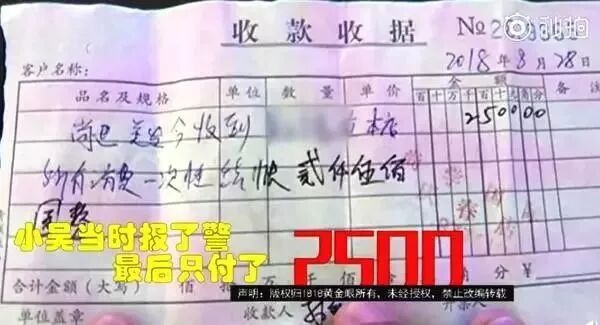 收款收据
№2
秒拍
2018年8月28日
客户名称：
品名及规格 单位 数量 单价 金额 备注
百十万千百十元角分
尚艾美发今收到 本店
250000
所有消费一次性结帐贰仟伍佰
圆整
小吴当时报了警
最后只付了
2500
声明：版权归1818黄金眼所有，未经授权，禁止改编转载
合计金额（大写） 佰 拾 仟 佰 角 分 ￥
单位盖章 收款人 开票人